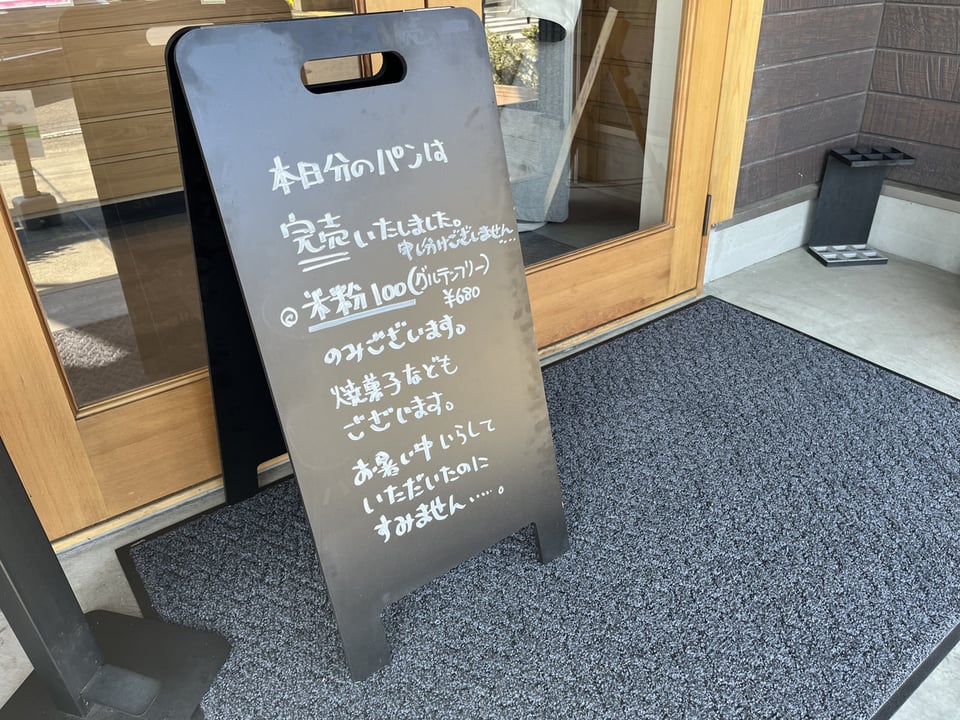 本日分のパンは
完売いたしました。
申し分けございません....
◎米粉100(グルテンフリー)
¥680
のみございます。
焼菓子なども
ございます。
お暑い中いらして
いただいたのに
すみません.....。